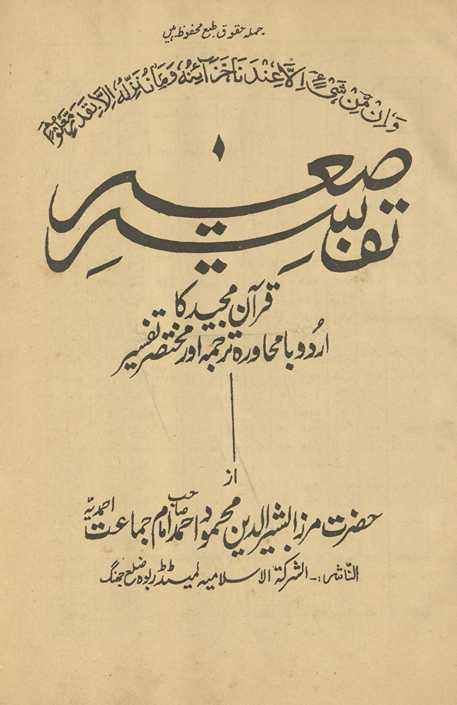 جملہ حقوق بطبع محفوظ ہیں
وَاِنْ مِّنْ شَیْءٍ اِلَّا عِنْدَنَا خَزَآئِنُهٗ وَمَا نُنَزِّلُهٗ اِلَّا بِقَدَرٍ مَّعْلُوْمٍ
تفسیر صغیر
قرآن مجید کا
اردو بامحاورہ ترجمہ اور مختصر تفسیر
از
حضرت مرزا بشیر الدین محمود احمد صاحب امام جماعت احمدیہ
الناشر:۔ الشرکۃ الاسلامیہ لمیٹڈ ربوہ ضلع جھنگ